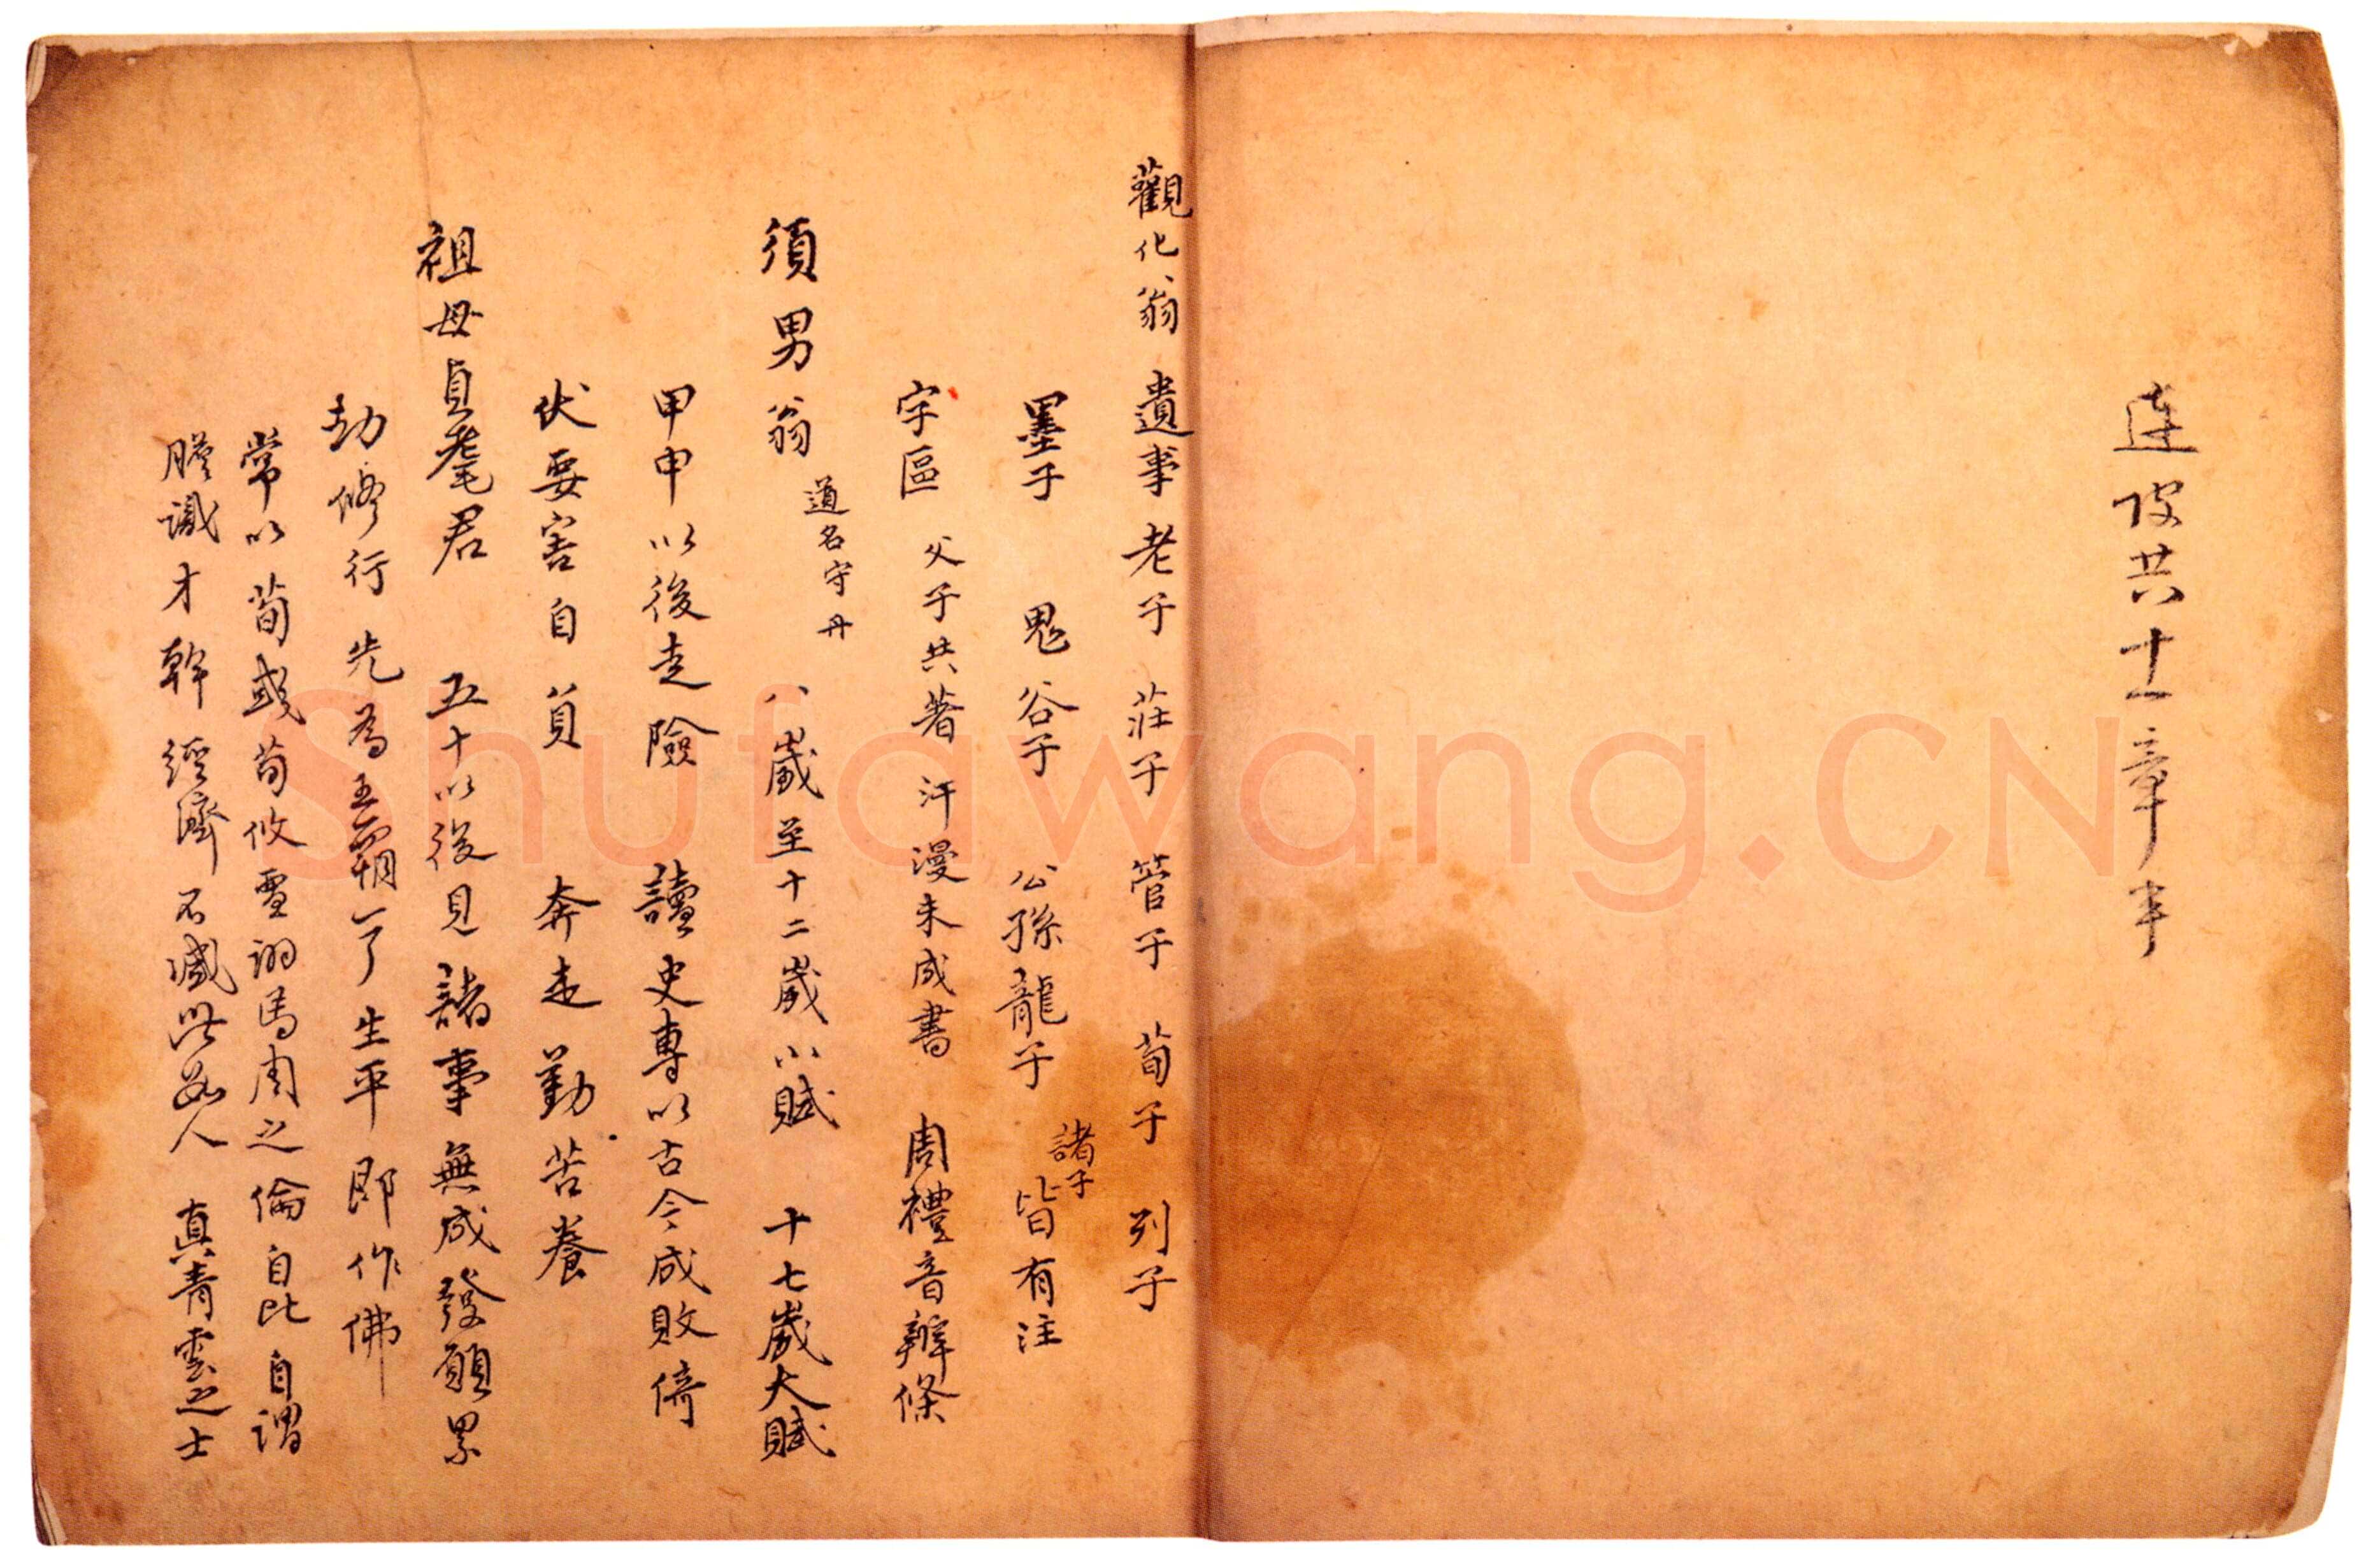 連皮共十一章半
觀化翁遺事 老子 莊子 管子 荀子 列子
墨子 鬼谷子 公孫龍子 諸子皆有注
字區 父子共著 汗漫未成書 周禮音辨條
須男翁 道名守丹 八歲至十二歲小賦 十七歲大賦
甲申以後走險 讀史專以古今成敗倚
伏要害自負 奔走勤苦養
祖母貞髦君 五十以後見諸事無成發願累
劫修行先為王霸一了生平即作佛
常以荀彧荀攸 馬周之倫自比自謂
膽識才幹經濟不減此數人 真青雲之士
Shufawang.CN